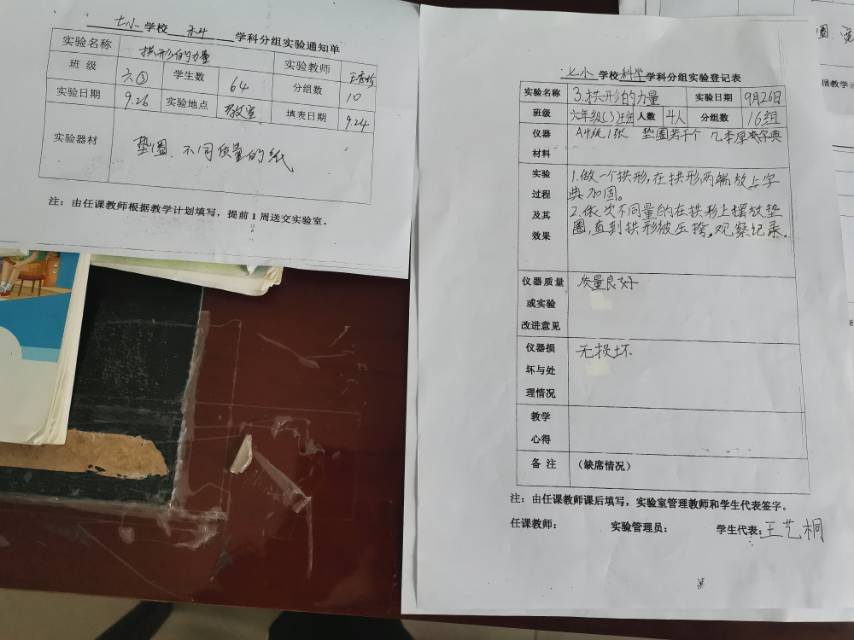 七小 学校 科学 学科分组实验通知单
实验名称 拱形的力量 实验教师
班 级 六③ 学生数 64 分组数 10
实验日期 9.26 实验地点 教室 填表日期 9.24
实验器材 垫圈、不同质量的纸
注：由任课教师根据教学计划填写，提前1周送交实验室。
七小 学校 科学 学科分组实验登记表
实验名称 3.拱形的力量 实验日期 9月26日
班级 六年级(3)班 人数 4人 分组数 16组
仪器 A4纸1张 垫圈若干个 几本厚类字典
材料
实验 1.做一个拱形,在拱形两端放上字
过程 典加固。
及其 2.依次不同量的在拱形上摆放垫
效果 圈,直到拱形被压垮,观察记录。
仪器质量 质量良好
或实验
改进意见
仪器损 无损坏
坏与处
理情况
教学
心得
备 注 (缺席情况)
注：由任课教师课后填写，实验室管理教师和学生代表签字。
任课教师： 实验管理员： 学生代表：王艺桐